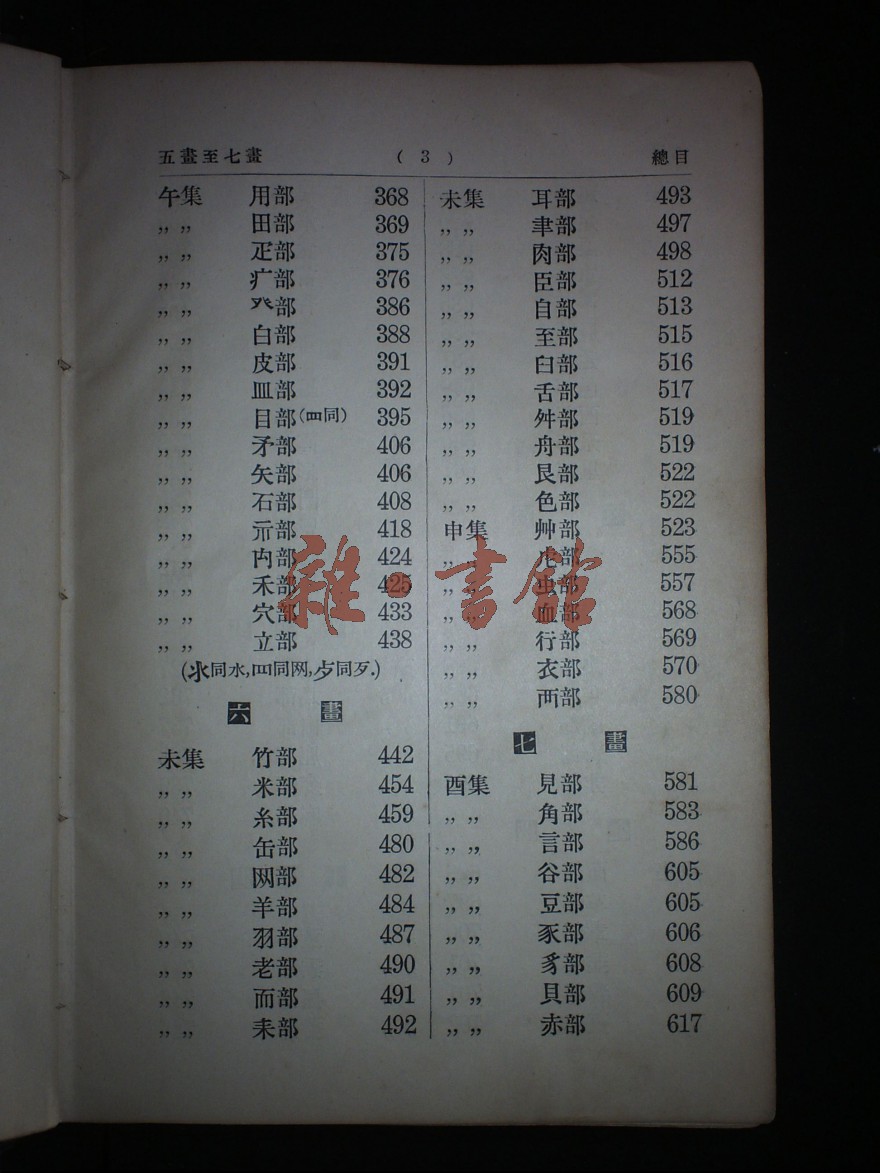 五畫至七畫 ( 3 ) 總目
午集 用部 368
〃 〃 田部 369
〃 〃 疋部 375
〃 〃 疒部 376
〃 〃 癶部 386
〃 〃 白部 388
〃 〃 皮部 391
〃 〃 皿部 392
〃 〃 目部(罒同) 395
〃 〃 矛部 406
〃 〃 矢部 406
〃 〃 石部 408
〃 〃 示部 418
〃 〃 禸部 424
〃 〃 禾部 425
〃 〃 穴部 433
〃 〃 立部 438
(氺同水,罒同网,歺同歹.)
六畫
未集 竹部 442
〃 〃 米部 454
〃 〃 糸部 459
〃 〃 缶部 480
〃 〃 网部 482
〃 〃 羊部 484
〃 〃 羽部 487
〃 〃 老部 490
〃 〃 而部 491
〃 〃 耒部 492
未集 耳部 493
〃 〃 聿部 497
〃 〃 肉部 498
〃 〃 臣部 512
〃 〃 自部 513
〃 〃 至部 515
〃 〃 臼部 516
〃 〃 舌部 517
〃 〃 舛部 519
〃 〃 舟部 519
〃 〃 艮部 522
〃 〃 色部 522
申集 艸部 523
〃 〃 虍部 555
〃 〃 虫部 557
〃 〃 血部 568
〃 〃 行部 569
〃 〃 衣部 570
〃 〃 襾部 580
七畫
酉集 見部 581
〃 〃 角部 583
〃 〃 言部 586
〃 〃 谷部 605
〃 〃 豆部 605
〃 〃 豕部 606
〃 〃 豸部 608
〃 〃 貝部 609
〃 〃 赤部 617
雜·書館